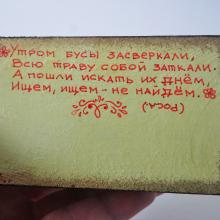 Утром бусы засверкали,
Всю траву собой заткали.
А пошли искать их днём,
Ищем, ищем - не найдём.
(Роса)